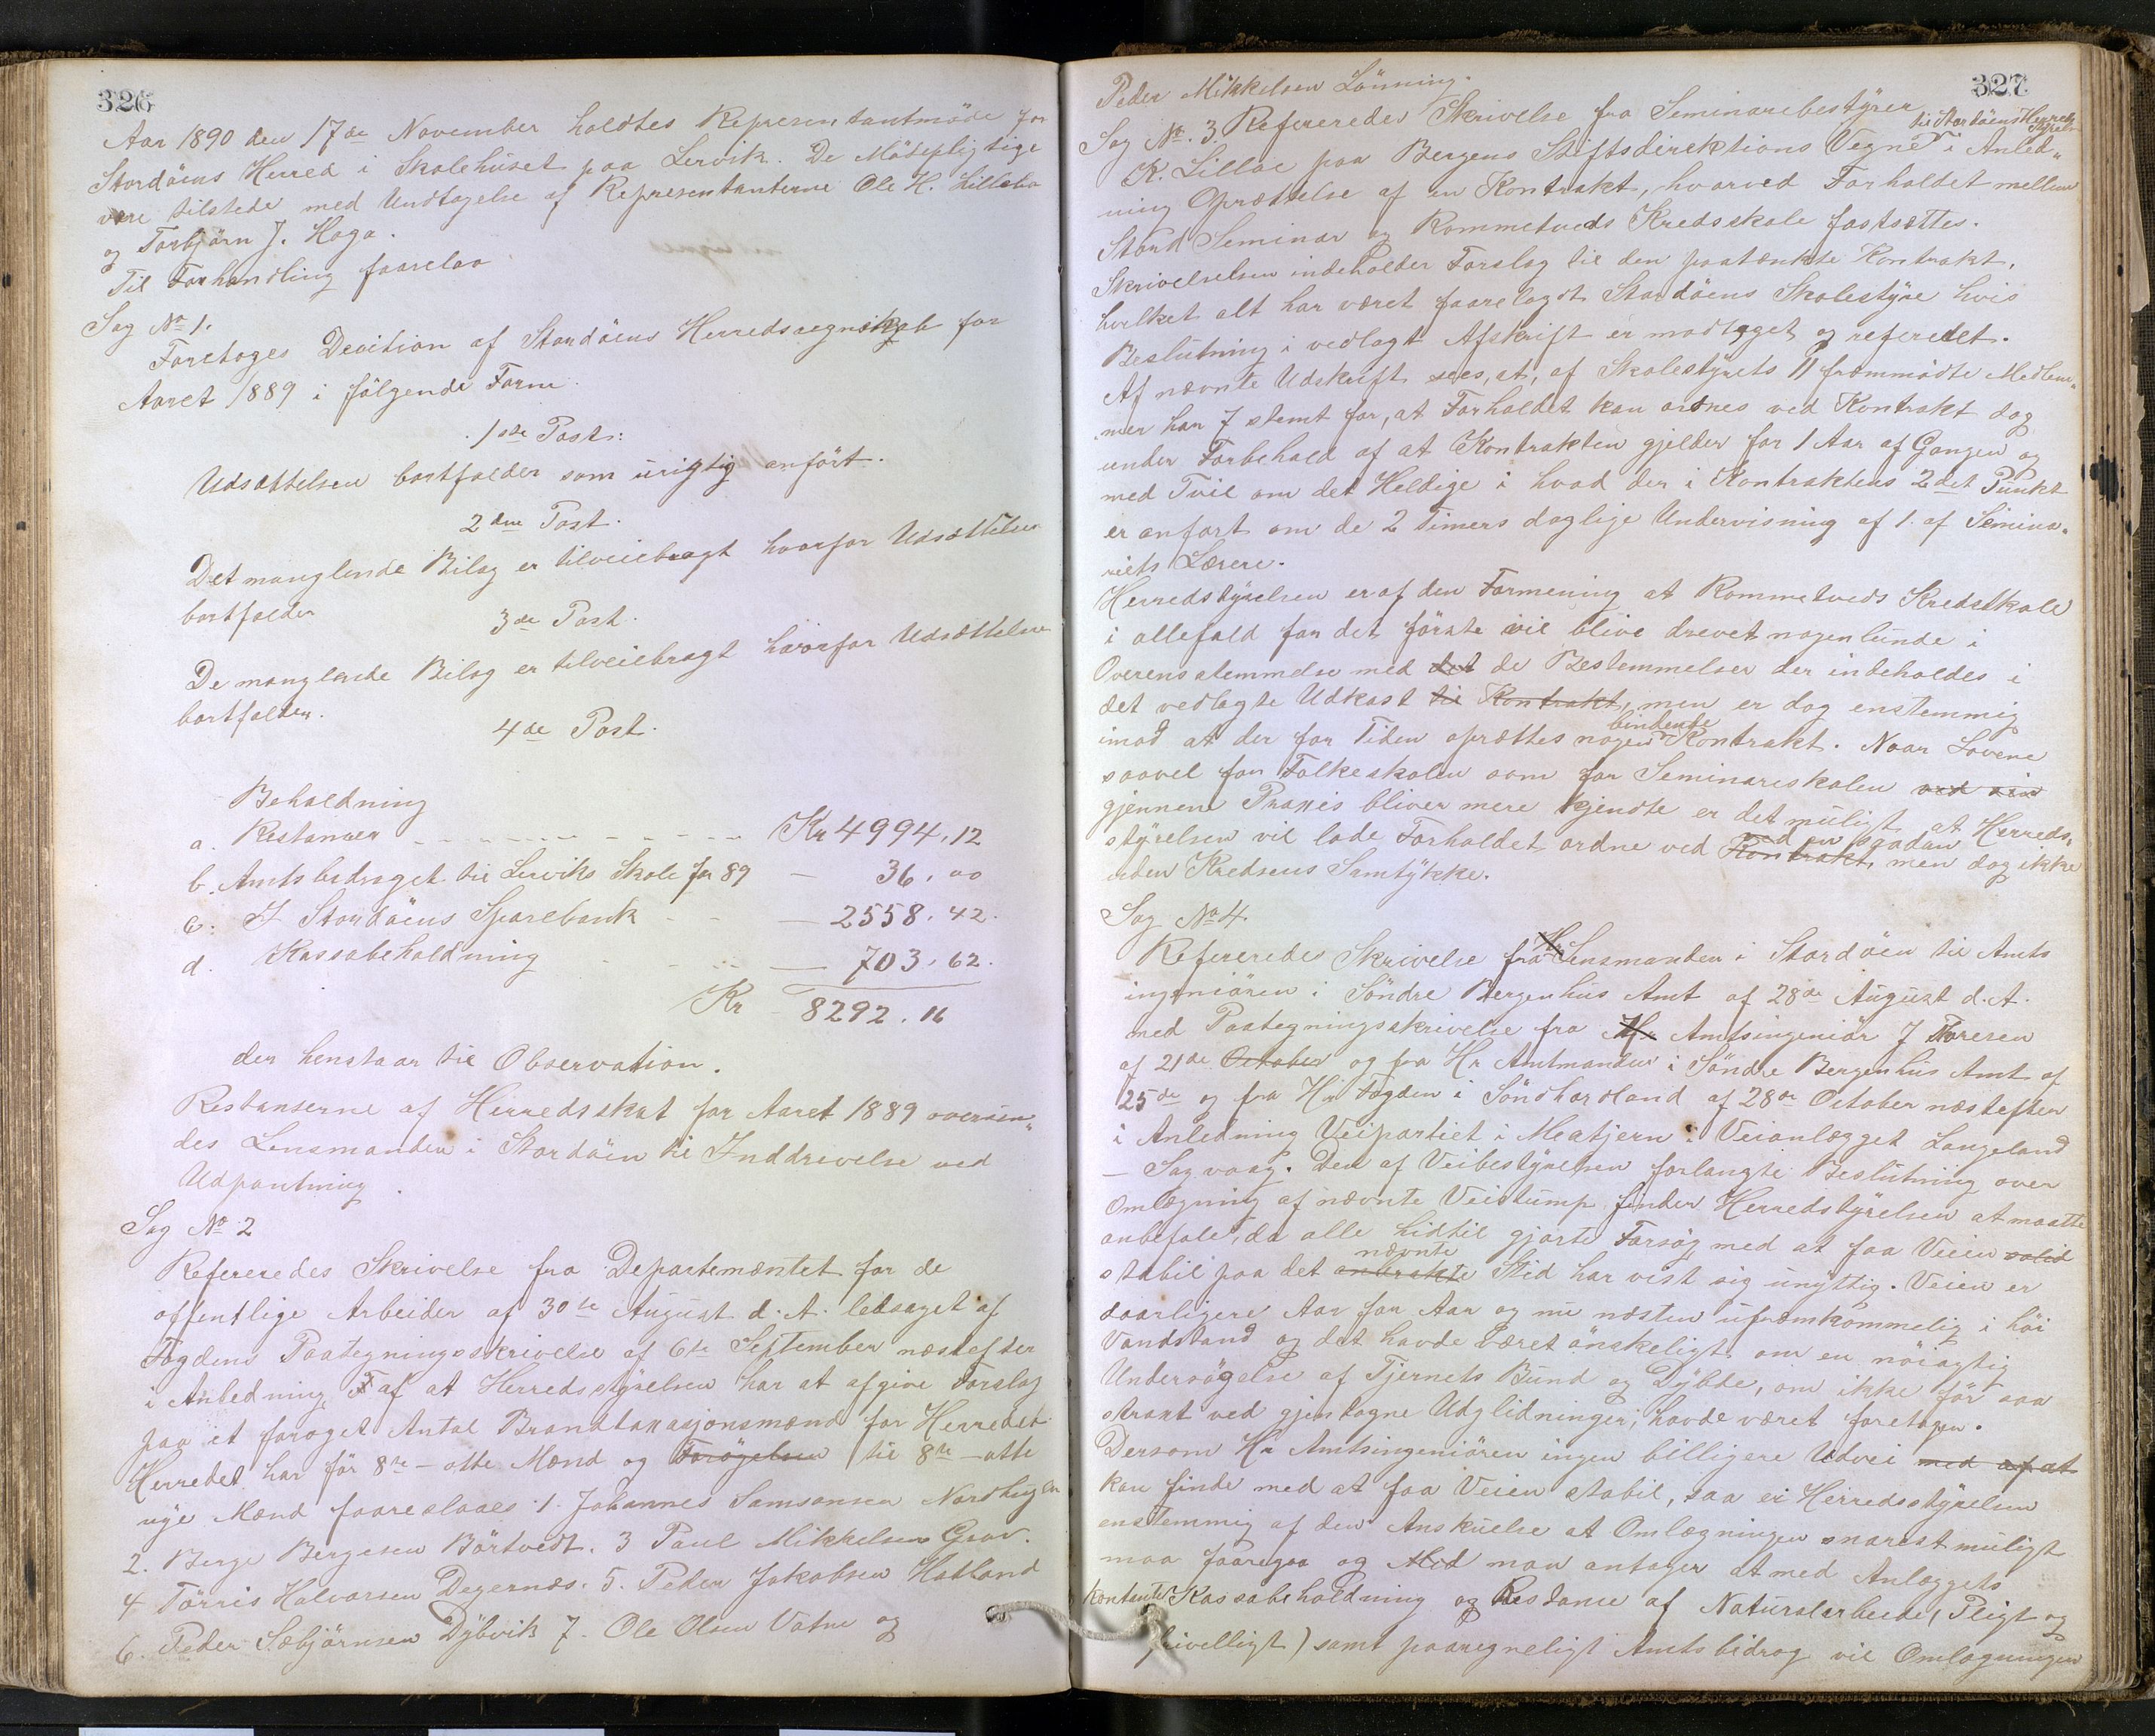 326
Aar 1890 den 17de November holdtes Representantmöde for
Stordöens Herred i Skolehuset paa Lervik. De Mödepligtige
vare tilstede med Undtagelse af Representanterne Ole H. Lillebø
og Torbjörn J. Haga.
Til Forhandling foorelaa
Sag No 1.
Foretoges Decition af Stordöens Herredsregnskab for
Aaret 1889 i fölgende Form.
1ste Post:
Udsættelsen bortfalder som urigtig anfört.
2den Post.
Det manglende Bilag er tilveiebragt hvorfor Udsættelsen
bortfalder
3de Post.
De manglende Bilag er tilveiebragt hvorfor Udsættelsen
bortfalder.
4de Post.
Beholdning
a. Restancer - - - - - - Kr 4994,12
b. Amtsbidraget til Lerviks Skole for 89 — 36,00
c. I Stordöens Sparebank - - — 2558,42.
d. Kassabeholdning - - — 703,62.
Kr 8292.16
der henstaar til Observation.
Restanserne af Herredsskat for Aaret 1889 oversen„
des Lensmanden i Stordöen til Inddrivelse ved
Udpantning.
Sag No 2
Refereredes Skrivelse fra Departementet for de
offentlige Arbeider af 30te August d. A. ledsaget af
Fogdens Paategningsskrivelse af 6te September næstefter
i Anledning af at Herredsstyrelsen har at afgive Forslag
paa et foröget Antal Brandtaxasjonsmænd for Herredet
Herredet har för 8te – otte Mænd og Forögelsen til 8te – otte
nye Mænd fooreslaaes 1. Johannes Samsonsen Nordhugen
2. Berge Bergesen Börtvedt. 3 Paul Mikkelsen Grov.
4 Törris Halvorsen Degernæs. 5. Peder Jakobsen Hatland
6. Peder Sæbjörnsen Dybvik 7. Ole Olsen Vatne og
327
Peder Mikkelsen Lönning.
Sag No. 3. Refereredes Skrivelse fra Seminarebestyrer
til Stordöens Herreds
Styrelse
K. Lilloe paa Bergens Stiftsdirektions Vegne i Anled„
ning Oprættelse af en Kontrakt, hvorved Forholdet mellem
Stord Seminar og Rommetveds Kredsskole fastsættes.
Skrivelselsen indeholder Forslag til den paatænkte Kontrakt,
hvilket alt har været foorelagdt Stordöens Skolestyre hvis
Beslutning i vedlagt Afskrift er modtaget og referedet.
Af nævnte Udskrift sees, at, af Skolestyrets 11 frammödte Medlem„
mer har 7 stemt for, at Forholdet kan ordnes ved Kontrakt dog
under Forbehold af at Kontrakten gjelder for 1 Aar af Gangen og
med Tvil om det Heldige i hvad der i Kontraktens 2det Punkt
er anfört om de 2 Timers daglige Undervisning af 1. af Semina„
riets Lærere.
Herredstyrelsen er af den Formening at Rommetveds Kredsskole
i allefald for det förste vil blive drevet nogenlunde i
Overensstemmelse med det de Bestemmelser der indeholdes i
det vedlagte Udkast til Kontrakt, men er dog enstemmig
imod at der for Tiden oprættes nogen bindende Kontrakt. Naar Lovene
saavel for Folkeskolen som for Seminareskolen ved sin
gjennem Praxis bliver mere kjendte er det muligt at Herreds„
styrelsen vil lade Forholdet ordne ved Kontrakt ved en saadan men dog ikke
uden Kredsens Samtykke.
Sag No 4.
Refereredes Skrivelse fra Hr Lensmanden i Stordöen til Amts
ingeniören i Söndre Bergenhus Amt af 28de August d. A.
med Paategningsskrivelse fra Hr Amtsingeniör J Thoresen
af 21de October og fra Hr Amtmanden i Söndre Bergenhus Amt af
25de og fra Hr Fogden i Söndhordland af 28de October næstefter
i Anledning Veipartiet i Meatjern i Veianlægget Langeland
– Sagvaag. Den af Veibestyrelsen forlangte Beslutning over
Omlægning af nævnte Veistump finder Herredstyrelsen at maatte
anbefale, da alle hidtil gjorte Forsög med at faa Veien solid
stabil paa det omtrakte nævnte Stid har vist sig unyttig. Veien er
daarligere Aar for Aar og nu næsten ufremkommelig i höi
Vandstand og det havde været önskeligt om en nöiagtig
Undersögelse af Tjernets Bund og Dybde, om ikke för saa
strakt ved gjentagne Udglidninger, havde været foretagen.
Dersom Hr Amtsingeniören ingen billigere Udvei med af at
kan finde med at faa Veien stabil, saa er Herredsstyrelsen
enstemmig af den Anskuelse at Omlægningen snarest muligt
maa fooregaa og Med man antager at med Anlæggets
kontante Kassabeholdning og Restance af Naturalarbeide, (Pligt og
frivilligt) samt paaregneligt Amtsbidrag vil Omlægningen